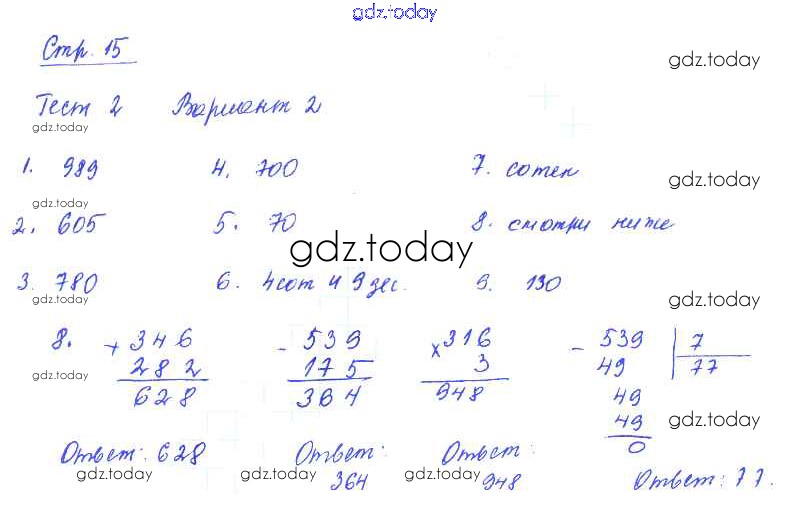 gdz.today
Стр. 15
gdz.today
Тест 2 Вариант 2
gdz.today
1. 989 4. 700 7. сотен
gdz.today gdz.today
2. 605 5. 70 8. смотри ниже
gdz.today
3. 780 6. 4 сот 4 9 дес. 9. 130
gdz.today gdz.today
8. + 346 - 539 × 316 - 539 | 7
282 175 3 49 77
628 364 948 49
gdz.today 49 gdz.today
0
Ответ: 628 Ответ: Ответ:
364 948 Ответ: 77.
gdz.today gdz.today gdz.today gdz.today